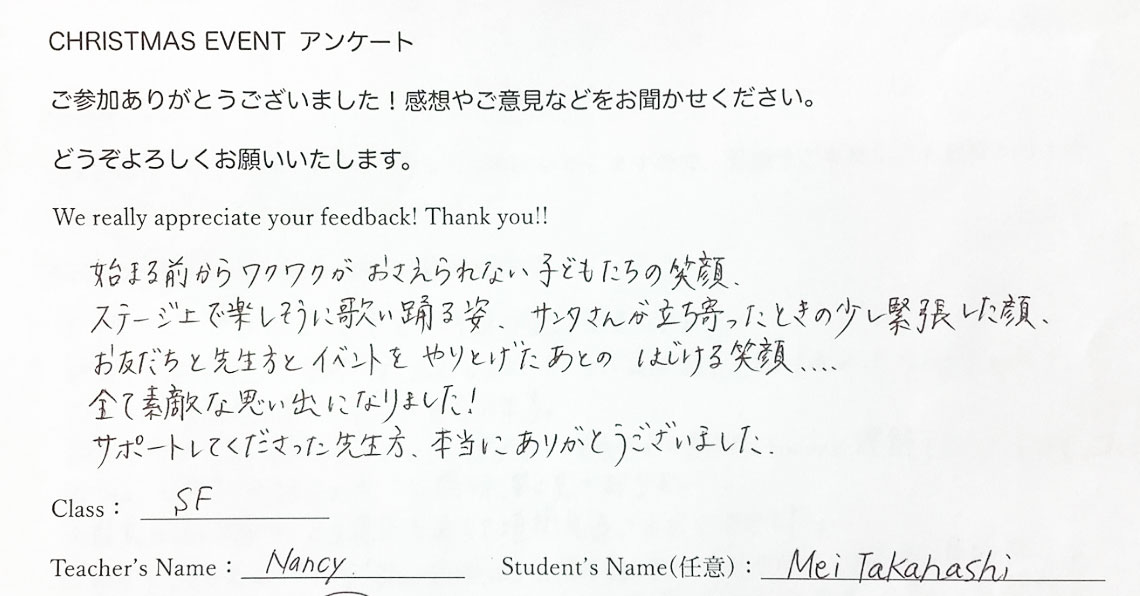 CHRISTMAS EVENT アンケート
ご参加ありがとうございました！感想やご意見などをお聞かせください。
どうぞよろしくお願いいたします。
We really appreciate your feedback! Thank you!!
始まる前からワクワクがおさえられない子どもたちの笑顔、
ステージ上で楽しそうに歌い踊る姿、サンタさんが立ち寄ったときの少し緊張した顔、
お友だちと先生方とイベントをやりとげたあとのはじける笑顔....
全て素敵な思い出になりました!
サポートしてくださった先生方、本当にありがとうございました.
Class： SF
Teacher's Name： Nancy. Student's Name(任意)： Mei Takahashi